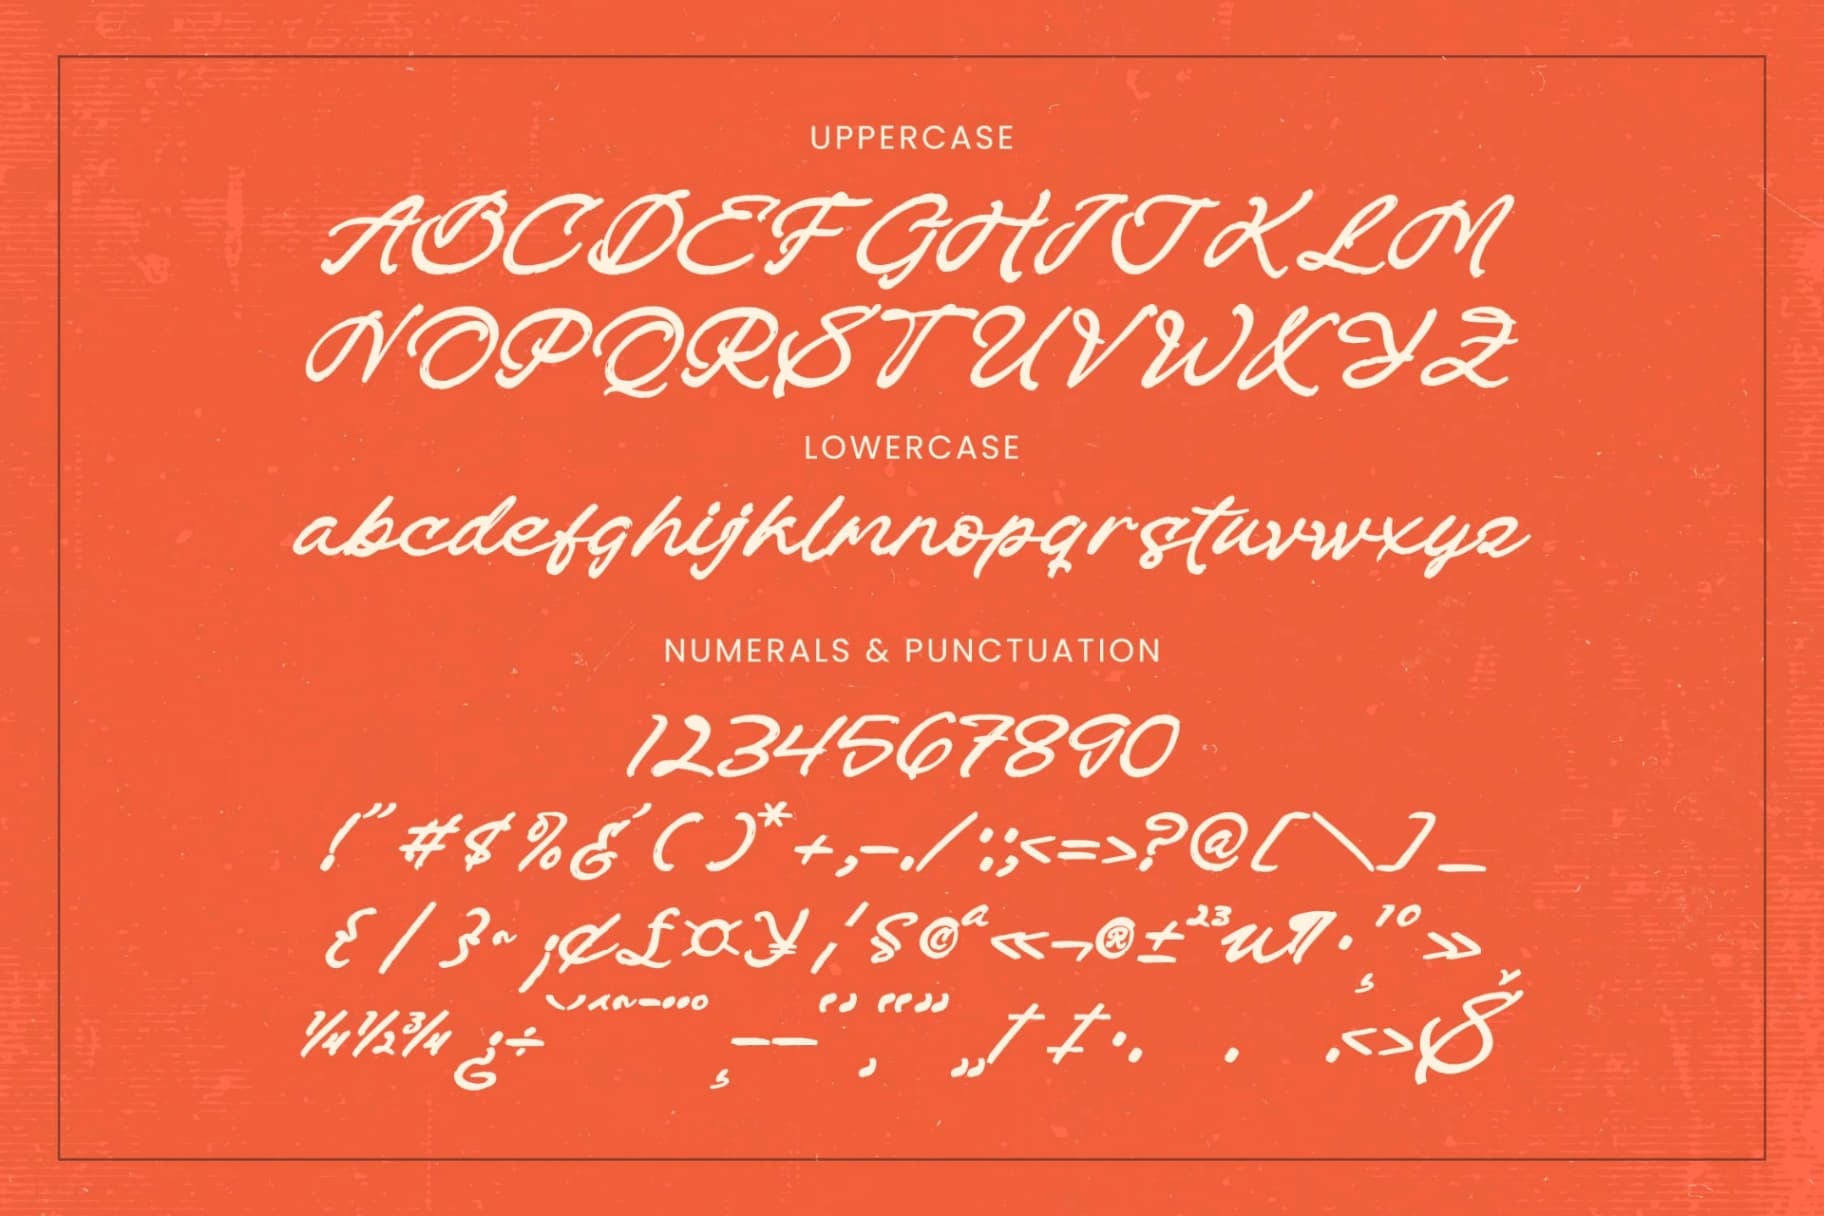 UPPERCASE
ABCDEFGHIJKLM
NOPQRSTUVWXYZ
LOWERCASE
abcdefghijklmnopqrstuvwxyz
NUMERALS & PUNCTUATION
1234567890
!"#$%&'()*+,-./:;<=>?@[\]_
{/}~¡¢£¤¥¦´§©ª«¬®±²³µ¶·¸¹º»
¼½¾¿÷˘˙˝˜¯°¸–—‘’‚“”„†‡•. . .<>Š